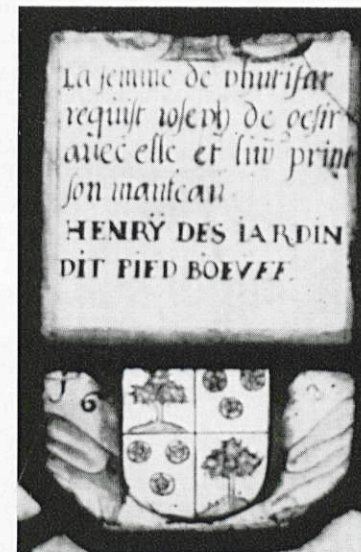 La femme de phutifar
requist ioseph de gesir
auec elle et luy print
son manteau
HENRŸ DES IARDIN
DIT PIED BOEVFF
6